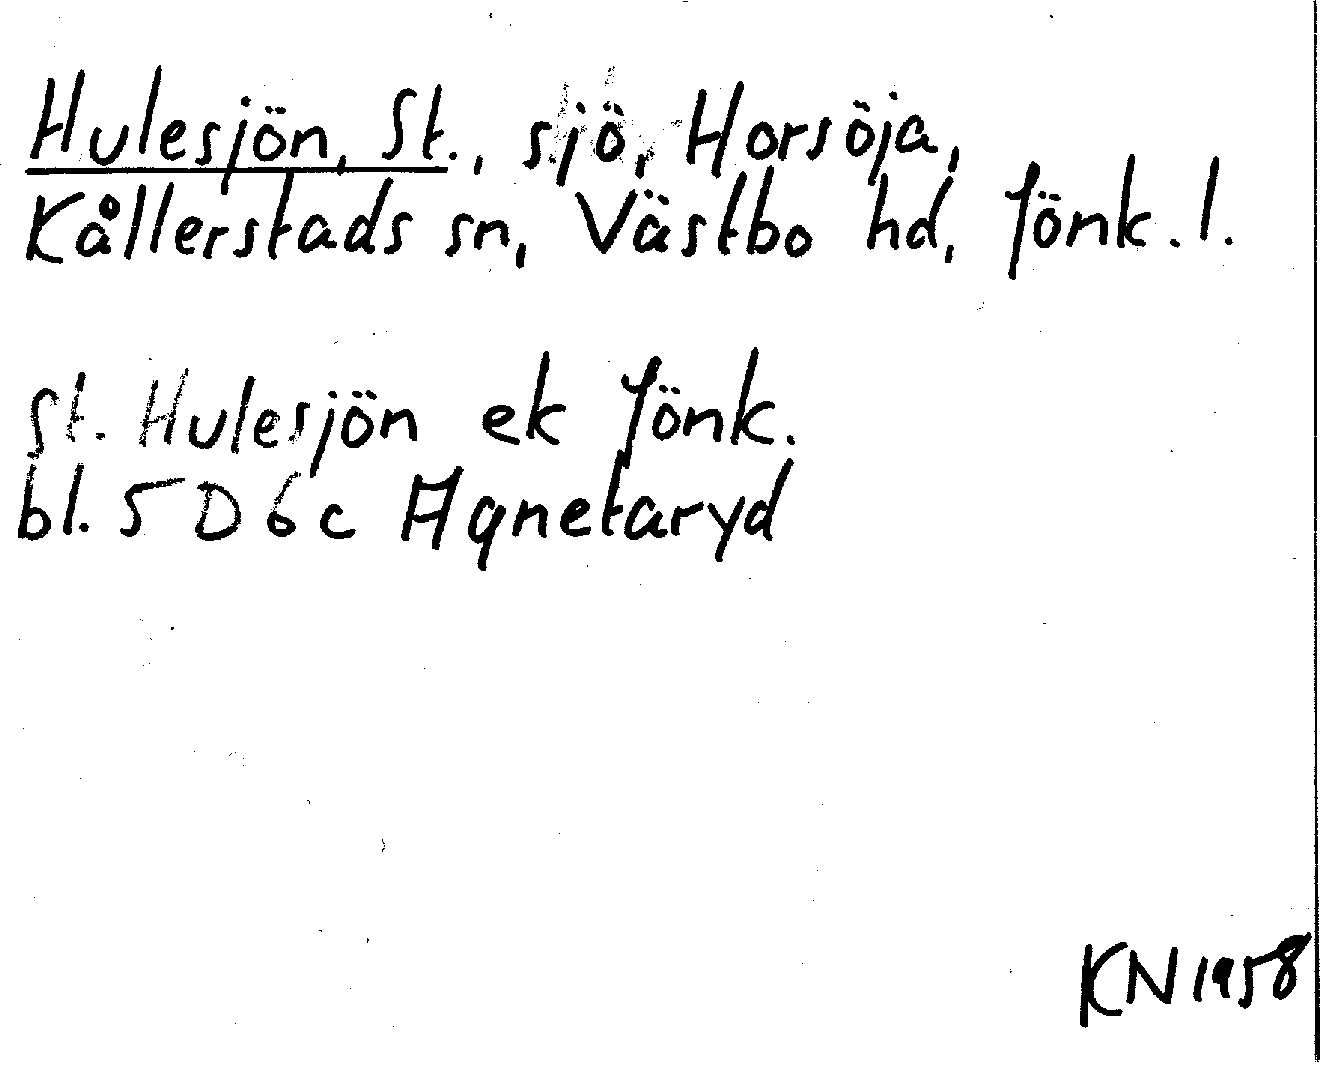 Hulesjön, St., sjö, Horsöja,
Kållerstads sn, Västbo hd, Jönk. l.
St. Hulesjön ek Jönk.
bl. 5 D 6 c Agnetaryd
KN 1958